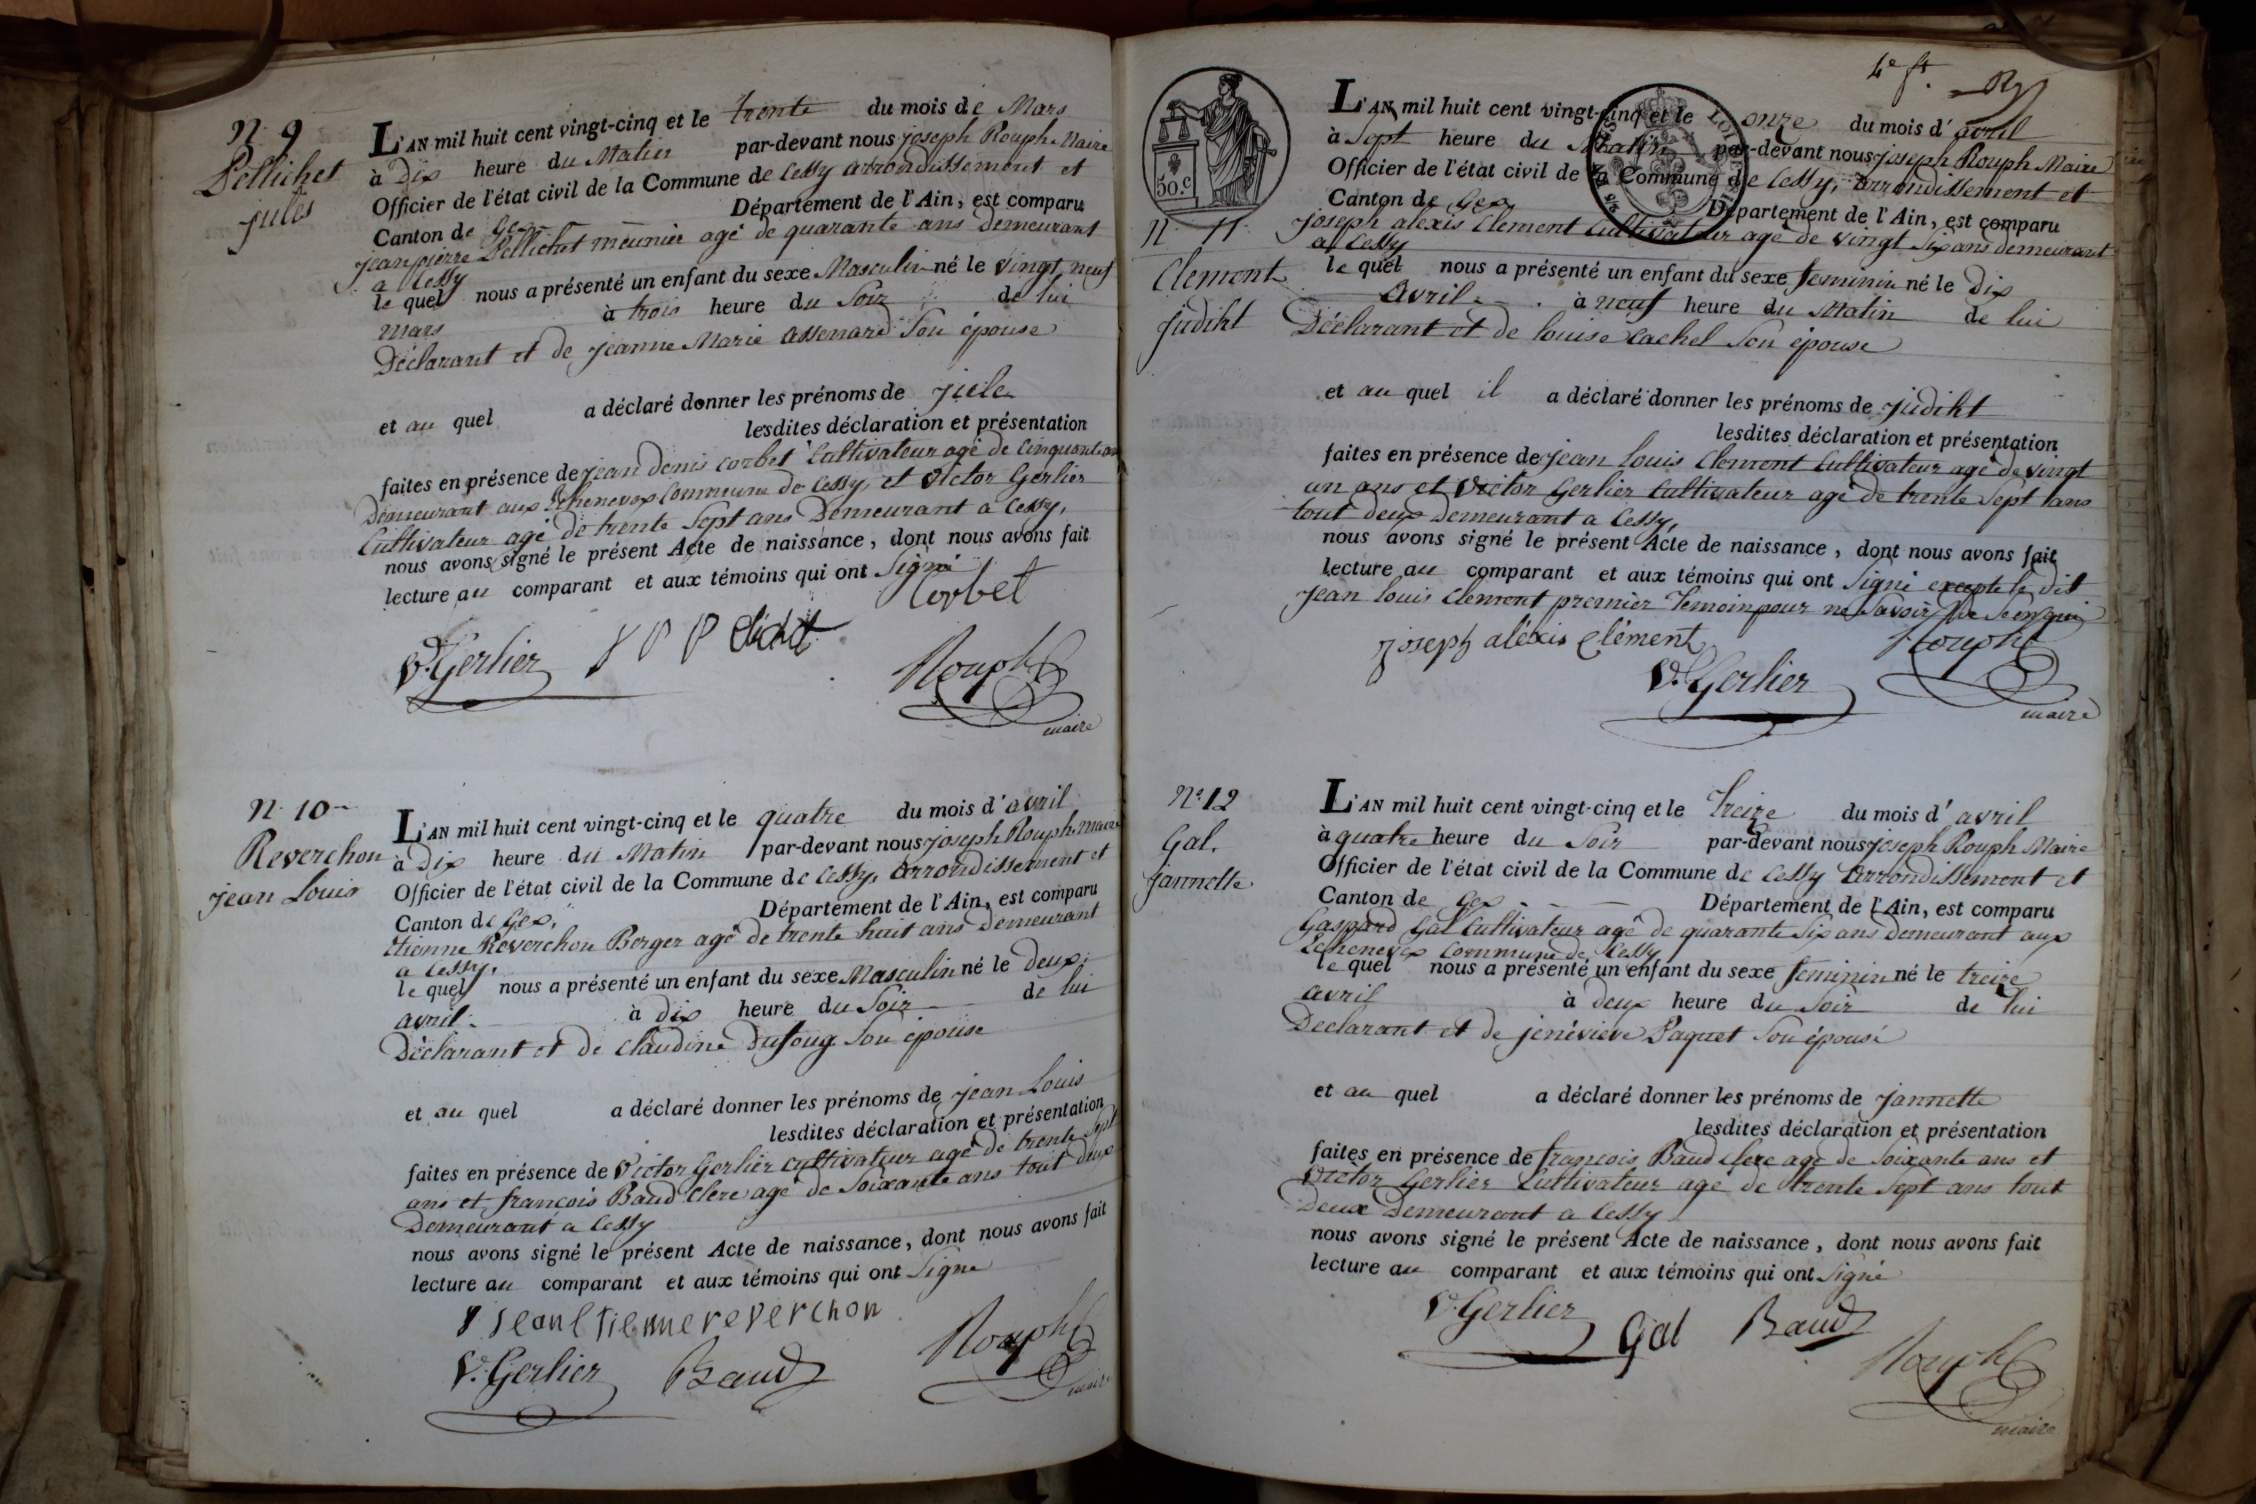 N. 9
Pellichet
jules
L'AN mil huit cent vingt-cinq et le trente du mois de Mars
à Dix heure du Matin par-devant nous joseph Rouph Maire
Officier de l'état civil de la Commune de Cessy arrondissement et
Canton de Gex Département de l'Ain, est comparu
jean pierre Pellichet meunier agé de quarante ans Demeurant
a Cessy
le quel nous a présenté un enfant du sexe Masculin né le vingt neuf
mars à trois heure du Soir de lui
Déclarant et de jeanne Marie assenard Son épouse
et au quel a déclaré donner les prénoms de jule
lesdites déclaration et présentation
faites en présence de jean denis corbet Cultivateur agé de Cinquante ans
Demeurant aux Echenevex Commune de Cessy, et victor Gerlier
Cultivateur agé de trente Sept ans Demeurant a Cessy,
nous avons signé le présent Acte de naissance, dont nous avons fait
lecture au comparant et aux témoins qui ont Signé
Corbet
V. Gerlier J P Pelichet Rouph
maire
N. 10
Reverchon
jean Louis
L'AN mil huit cent vingt-cinq et le quatre du mois d'avril
à Dix heure du Matin par-devant nous joseph Rouph maire
Officier de l'état civil de la Commune de Cessy, arrondissement et
Canton de Gex, Département de l'Ain, est comparu
Etienne Reverchon Berger agé de trente huit ans Demeurant
a Cessy,
le quel nous a présenté un enfant du sexe Masculin né le deux
avril à dix heure du Soir de lui
Déclarant et de Claudine Dufoug Son épouse
et au quel a déclaré donner les prénoms de jean Louis
lesdites déclaration et présentation
faites en présence de Victor Gerlier cultivateur agé de trente Sept
ans et françois Baud Clerc agé de Soixante ans tout deux
Demeurant a Cessy
nous avons signé le présent Acte de naissance, dont nous avons fait
lecture au comparant et aux témoins qui ont Signé
jean Etienne reverchon
V. Gerlier Baud Rouph
maire
4e ft.
50.c
N. 11
Clement
judiht
L'AN mil huit cent vingt-cinq et le onze du mois d'avril
à Sept heure du Matin par-devant nous joseph Rouph Maire
Officier de l'état civil de la Commune de Cessy, arrondissement et
Canton de Gex Département de l'Ain, est comparu
joseph alexis Clement Cultivateur agé de vingt Six ans demeurant
a Cessy
le quel nous a présenté un enfant du sexe feminin né le Dix
avril à neuf heure du Matin de lui
Déclarant et de louise cachel Son épouse
et au quel il a déclaré donner les prénoms de judiht
lesdites déclaration et présentation
faites en présence de jean Louis Clement Cultivateur agé de vingt
un ans et Victor Gerlier Cultivateur agé de trente Sept ans
tout deux Demeurant a Cessy,
nous avons signé le présent Acte de naissance, dont nous avons fait
lecture au comparant et aux témoins qui ont Signé excepte le dit
jean louis clement premier temoin pour ne Savoir de
joseph aléxis clément Rouph
V. Gerlier
maire
No. 12
Gal.
jannette
L'AN mil huit cent vingt-cinq et le Treize du mois d'avril
à quatre heure du Soir par-devant nous joseph Rouph Maire
Officier de l'état civil de la Commune de Cessy arrondissement et
Canton de Gex Département de l'Ain, est comparu
Gaspard Gal Cultivateur agé de quarante Six ans Demeurant aux
Echenevex Commune de Cessy
le quel nous a présenté un enfant du sexe feminin né le treize
avril à deux heure du Soir de lui
Declarant et de jenévieve Paquet Son épouse
et au quel a déclaré donner les prénoms de jannette
lesdites déclaration et présentation
faites en présence de françois Baud Clerc agé de Soixante ans et
Victor Gerlier Cultivateur agé de trente Sept ans tout
Deux Demeurant a Cessy
nous avons signé le présent Acte de naissance, dont nous avons fait
lecture au comparant et aux témoins qui ont Signé
V. Gerlier Gal Baud
Rouph
maire